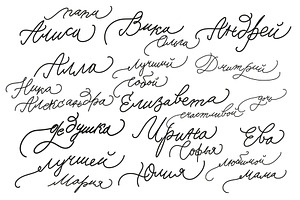 папа
Алиса Вика Андрей
Ольга
Алла лучший Дмитрий
Нина собой
Александра Елизавета дочь
счастливой
дедушка Ирина Ева
Софья
лучшей любимой
Мария Юлия мама